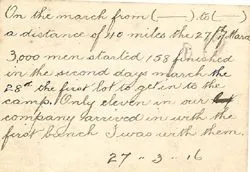 On the march from (——) to (——)
a distance of 40 miles the 27th of Mara
3,000 men started 158 finished
in the second days march the
28th the first lot to get in to the
camp. Only eleven in our
company arrived in with the
first bench I was with them.
27 - 3 - 16